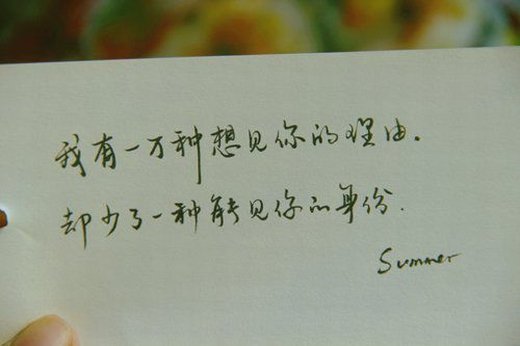 我有一万种想见你的理由.
却少了一种能见你的身份.
Summer